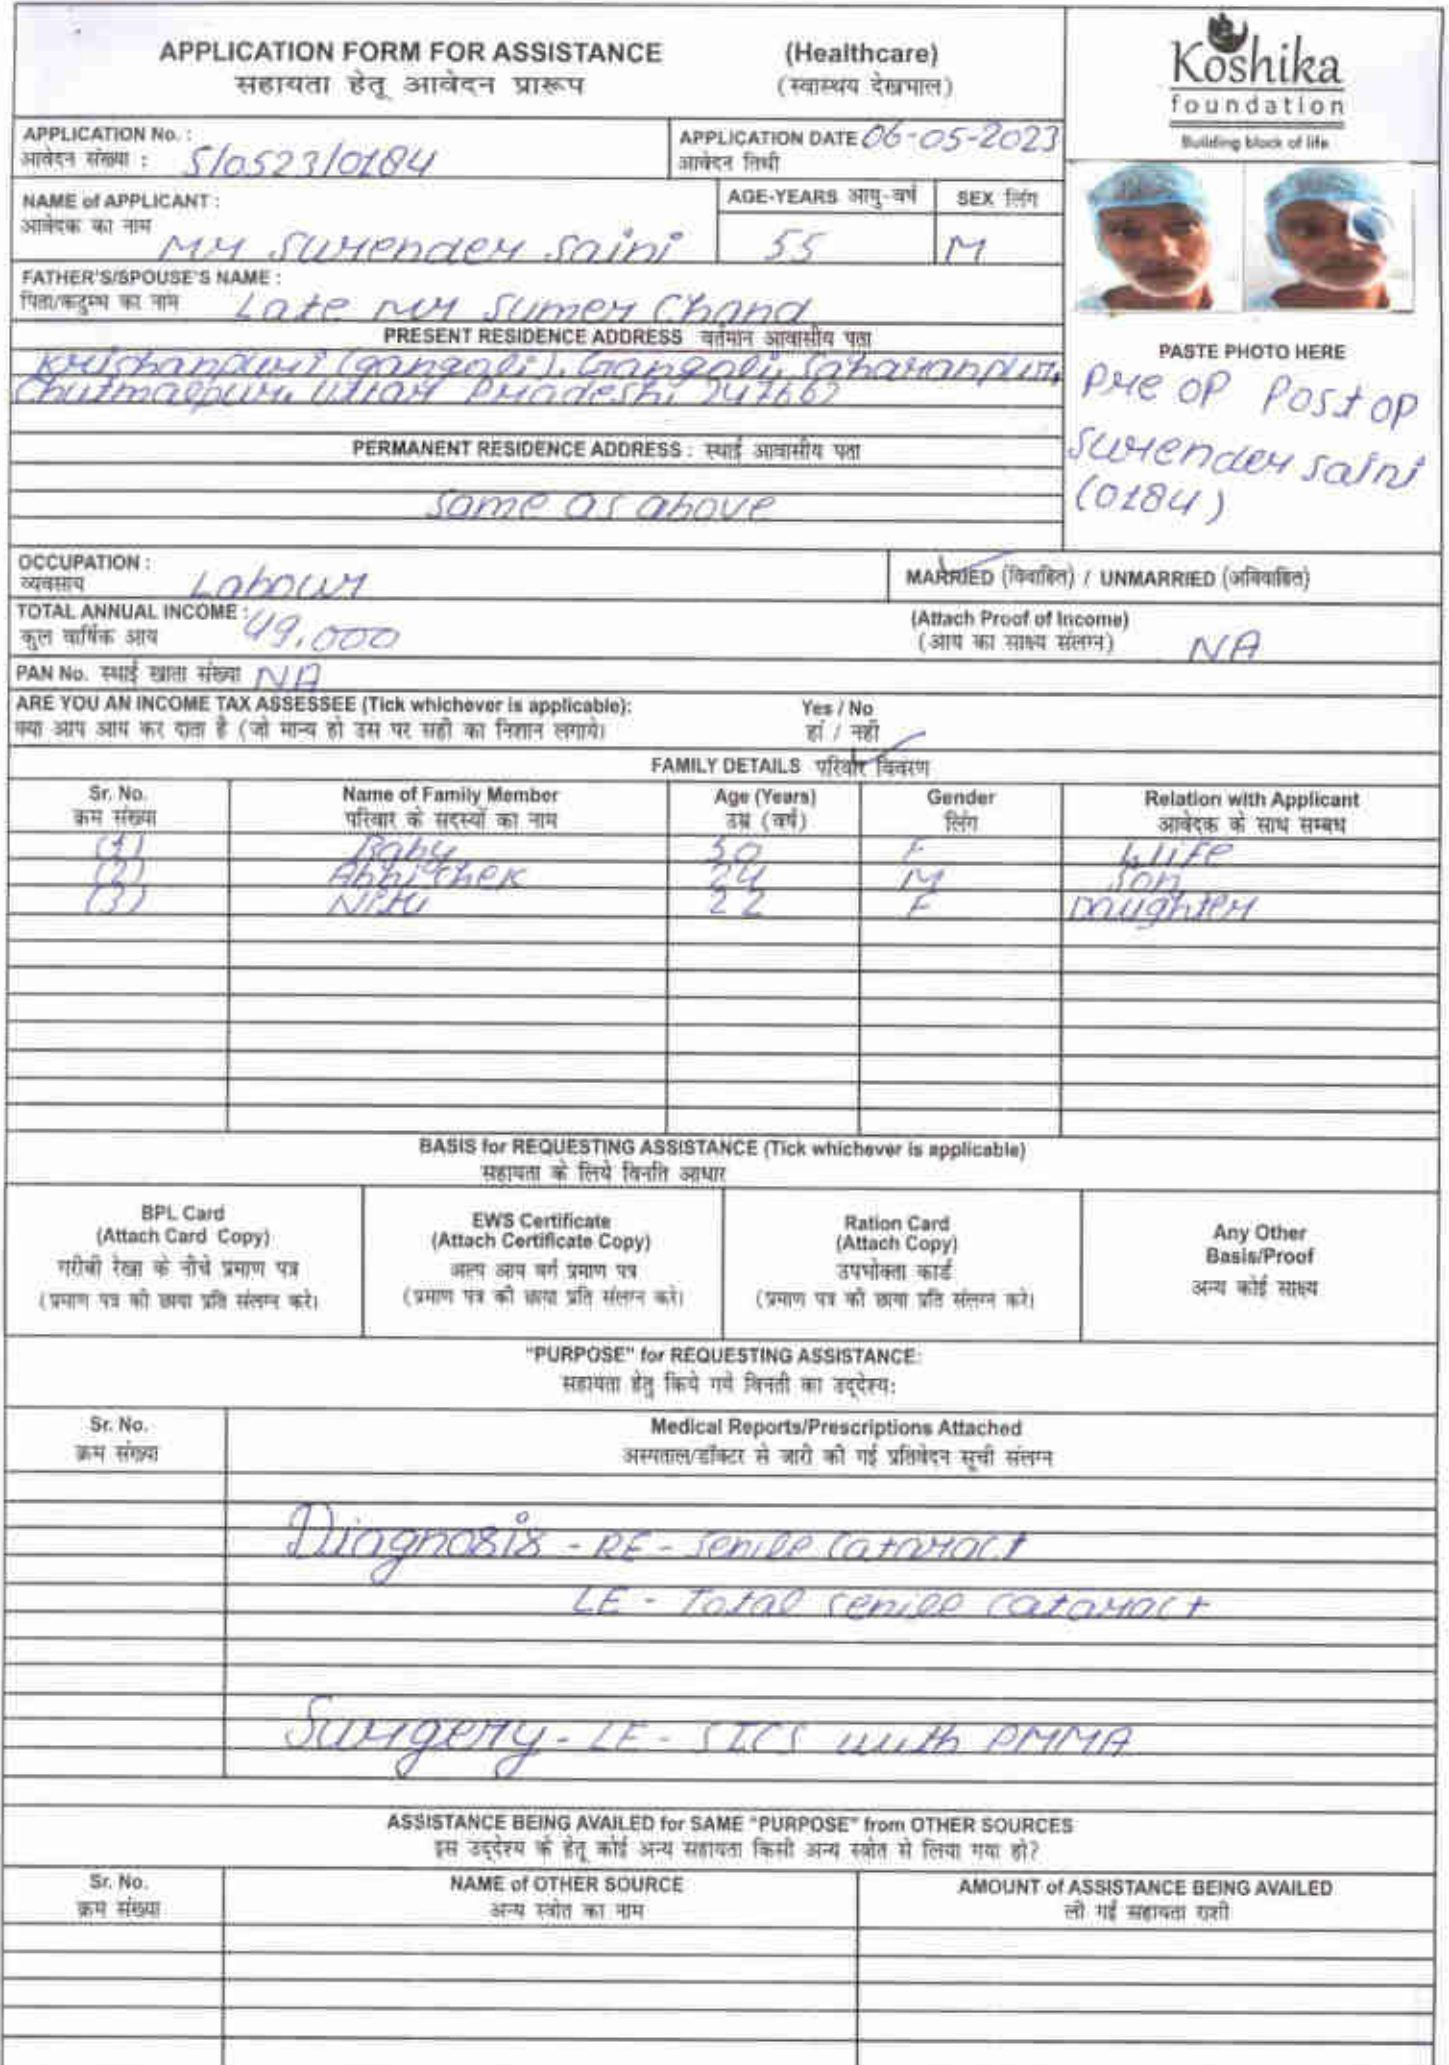 APPLICATION FORM FOR ASSISTANCE (Healthcare)
सहायता हेतू आवेदन प्रारूप (स्वास्थय देखभाल)
Koshika
foundation
Building block of life
APPLICATION No. :
आवेदन संख्या : S/0523/0184
APPLICATION DATE 06-05-2023
आवेदन तिथी
NAME of APPLICANT :
आवेदक का नाम
Mr Surender Saini
AGE-YEARS आयु-वर्ष
55
SEX लिंग
M
FATHER'S/SPOUSE'S NAME :
पिता/कटुम्ब का नाम Late Mr Sumer Chand
PRESENT RESIDENCE ADDRESS वर्तमान आवासीय पता
Krishanpuri (gangali), Gangali, Saharanpur,
Chutmalpur, Uttar Pradesh, 247662
PERMANENT RESIDENCE ADDRESS : स्थाई आवासीय पता
Same as above
PASTE PHOTO HERE
Pre op Post op
Surender Saini
(0184)
OCCUPATION :
व्यवसाय Labour
MARRIED (विवाहित) / UNMARRIED (अविवाहित)
TOTAL ANNUAL INCOME :
कुल वार्षिक आय 49,000
(Attach Proof of Income)
(आय का साक्ष्य संलग्न) NA
PAN No. स्थाई खाता संख्या NA
ARE YOU AN INCOME TAX ASSESSEE (Tick whichever is applicable): Yes / No
क्या आप आय कर दाता है (जो मान्य हो उस पर सही का निशान लगाये) हां / नहीं
FAMILY DETAILS परिवार विवरण
Sr. No. Name of Family Member Age (Years) Gender Relation with Applicant
क्रम संख्या परिवार के सदस्यों का नाम उम्र (वर्ष) लिंग आवेदक के साथ सम्बध
(1) Baby 50 F Wife
(2) Abhishek 24 M Son
(3) Nitu 22 F Daughter
BASIS for REQUESTING ASSISTANCE (Tick whichever is applicable)
सहायता के लिये विनति आधार
BPL Card
(Attach Card Copy)
गरीबी रेखा के नीचे प्रमाण पत्र
(प्रमाण पत्र की छाया प्रति संलग्न करे)
EWS Certificate
(Attach Certificate Copy)
अल्प आय वर्ग प्रमाण पत्र
(प्रमाण पत्र की छाया प्रति संलग्न करे)
Ration Card
(Attach Copy)
उपभोक्ता कार्ड
(प्रमाण पत्र की छाया प्रति संलग्न करे)
Any Other
Basis/Proof
अन्य कोई साक्ष्य
"PURPOSE" for REQUESTING ASSISTANCE:
सहायता हेतु किये गये विनती का उद्देश्य:
Sr. No. Medical Reports/Prescriptions Attached
क्रम संख्या अस्पताल/डॉक्टर से जारी की गई प्रतिवेदन सूची संलग्न
Diagnosis - RE - Senile Cataract
LE - Total senile cataract
Surgery - LE - SICS with PMMA
ASSISTANCE BEING AVAILED for SAME "PURPOSE" from OTHER SOURCES
इस उद्देश्य के हेतू कोई अन्य सहायता किसी अन्य स्त्रोत से लिया गया हो?
Sr. No. NAME of OTHER SOURCE AMOUNT of ASSISTANCE BEING AVAILED
क्रम संख्या अन्य स्त्रोत का नाम ली गई सहायता राशी